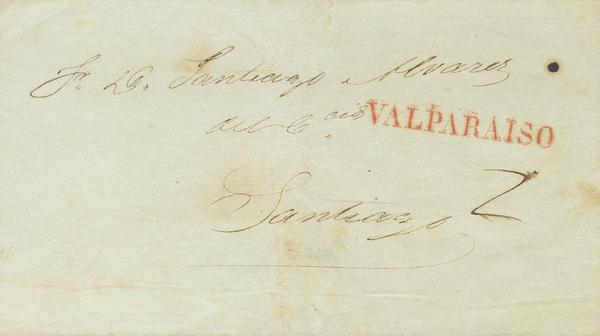 Sr. D. Santiago Alvarez
del C.oio
VALPARAISO
Santiago 2